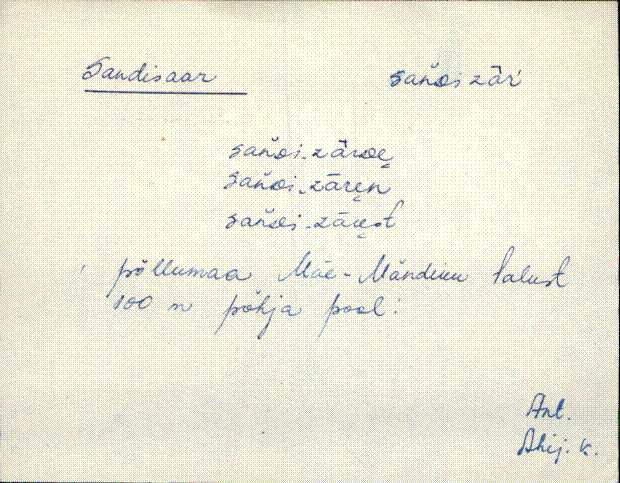 Sandisaar saňDi zār
saňDi-zāroę
saňDi-zāręn
saňDi-zāręst
põllumaa Mäe-Mändiku talust
100 m põhja pool.
Ant.
Ahij. k.